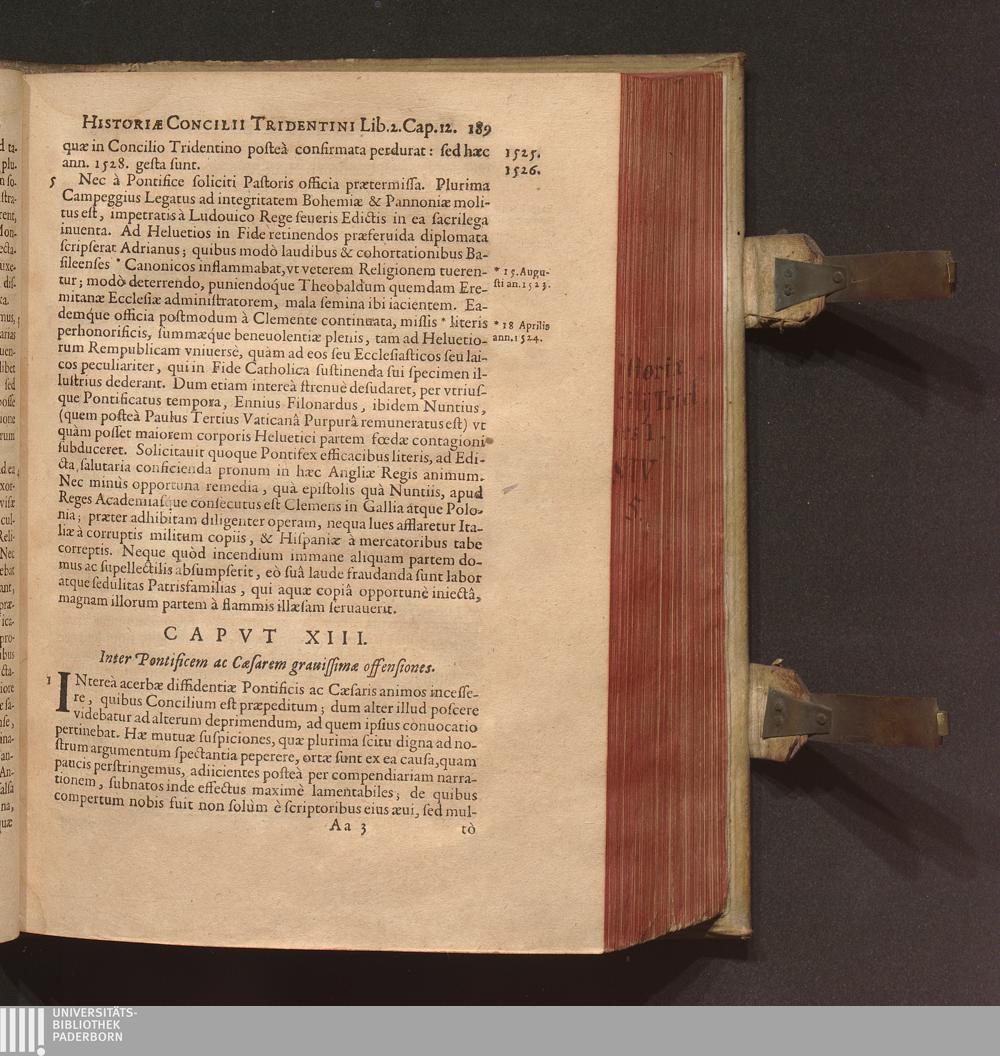 HISTORIÆ CONCILII TRIDENTINI Lib.2.Cap.12. 189
quæ in Concilio Tridentino posteà confirmata perdurat: sed hæc
ann. 1528. gesta sunt.
1525.
1526.
5 Nec à Pontifice soliciti Pastoris officia prætermissa. Plurima
Campeggius Legatus ad integritatem Bohemiæ & Pannoniæ moli-
tus est, impetratis à Ludouico Rege seueris Edictis in ea sacrilega
inuenta. Ad Heluetios in Fide retinendos præferuida diplomata
scripserat Adrianus; quibus modò laudibus & cohortationibus Ba-
sileenses * Canonicos inflammabat, vt veterem Religionem tueren-
tur; modò deterrendo, puniendoque Theobaldum quemdam Ere-
mitanæ Ecclesiæ administratorem, mala semina ibi iacientem. Ea-
demque officia postmodum à Clemente continuata, missis * literis
perhonorificis, summæque beneuolentiæ plenis, tam ad Heluetio-
rum Rempublicam vniuersè, quàm ad eos seu Ecclesiasticos seu lai-
cos peculiariter, qui in Fide Catholica sustinenda sui specimen il-
lustrius dederant. Dum etiam intereà strenuè desudaret, per vtrius-
que Pontificatus tempora, Ennius Filonardus, ibidem Nuntius,
(quem posteà Paulus Tertius Vaticanâ Purpurâ remuneratus est) vt
quàm posset maiorem corporis Heluetici partem fœdæ contagioni
subduceret. Solicitauit quoque Pontifex efficacibus literis, ad Edi-
cta, salutaria conficienda pronum in hæc Angliæ Regis animum.
Nec minùs opportuna remedia, quà epistolis quà Nuntiis, apud
Reges Academiasque consecutus est Clemens in Gallia atque Polo-
nia; præter adhibitam diligenter operam, nequa lues afflaretur Ita-
liæ à corruptis militum copiis, & Hispaniæ à mercatoribus tabe
correptis. Neque quòd incendium immane aliquam partem do-
mus ac supellectilis absumpserit, eò suâ laude fraudanda sunt labor
atque sedulitas Patrisfamilias, qui aquæ copiâ opportunè iniectâ,
magnam illorum partem à flammis illæsam seruauerit.
* 15. Augu-
sti an. 1523.
* 18 Aprilis
ann. 1524.
CAPVT XIII.
Inter Pontificem ac Cæsarem grauissimæ offensiones.
1 INtereà acerbæ diffidentiæ Pontificis ac Cæsaris animos incesse-
re, quibus Concilium est præpeditum; dum alter illud poscere
videbatur ad alterum deprimendum, ad quem ipsius conuocatio
pertinebat. Hæ mutuæ suspiciones, quæ plurima scitu digna ad no-
strum argumentum spectantia peperere, ortæ sunt ex ea causa, quam
paucis perstringemus, adiicientes posteà per compendiariam narra-
tionem, subnatos inde effectus maximè lamentabiles; de quibus
compertum nobis fuit non solùm è scriptoribus eius æui, sed mul-
Aa 3 tò
UNIVERSITÄTS-
BIBLIOTHEK
PADERBORN